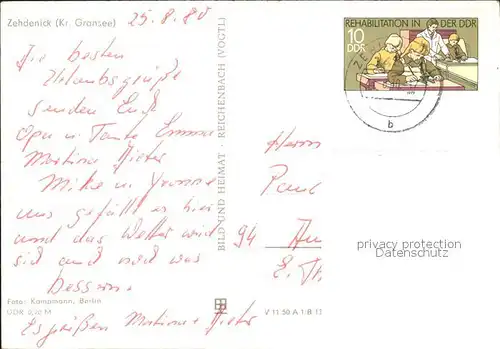 Zehdenick (Kr. Gransee)
25.8.80
Die besten
Urlaubsgrüße
senden Euch
Opa u. Tante Emma
Martina Dieter
Mike u. Yvonne
uns gefällt es hier
und das Wetter wird
sich auch noch was
bessern.
Foto: Kampmann, Berlin
DDR 0,20 M
Es grüßen Martina + Dieter
BILD UND HEIMAT · REICHENBACH (VOGTL)
REHABILITATION IN DER DDR
10
DDR
b
Herrn
Paul
94 Au
E. Th
privacy protection
Datenschutz
V 11 50 A 1/B